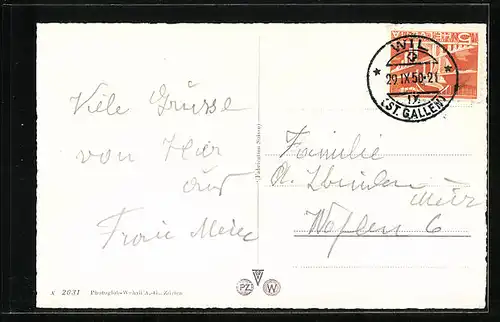 Viele Grüsse
von Hier
aus
Frau Meier
Familie
A.
Meier
6
WIL
29 IX 50-21
IX
(ST. GALLEN)
10
(Fabrication Suisse)
K 2631 Photoglob-Wehrli A.-G., Zürich
PZ
W